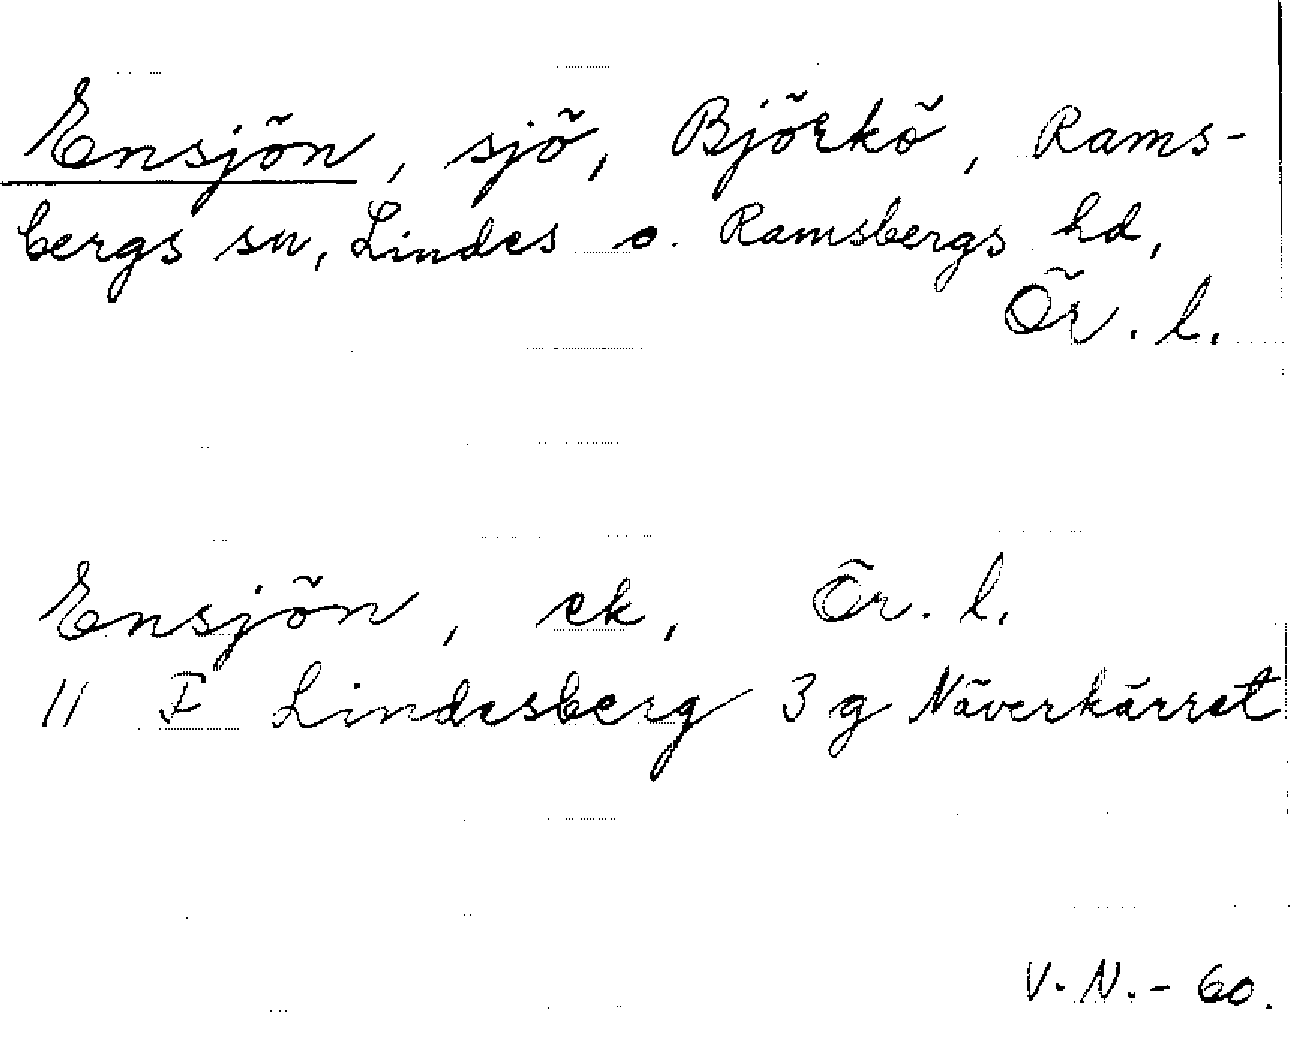 Ensjön, sjö, Björkö, Rams-
bergs sn, Lindes o. Ramsbergs hd,
Ör. l.
Ensjön, ek, Ör. l.
11 F Lindesberg 3 g Näverkärret
V. N. - 60.